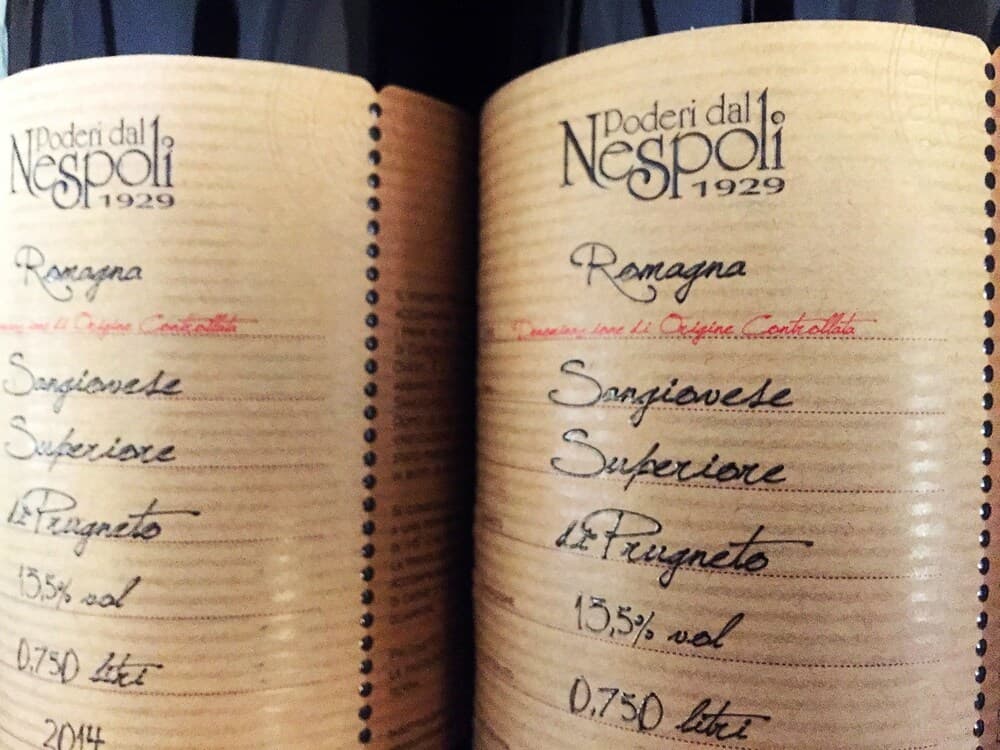 Poderi dal
Nespoli
1929
Romagna
di Origine Controllata
Sangiovese
Superiore
di Prugneto
13,5% vol
0,750 litri
2014
Poderi dal
Nespoli
1929
Romagna
Denominazione di Origine Controllata
Sangiovese
Superiore
di Prugneto
13,5% vol
0,750 litri